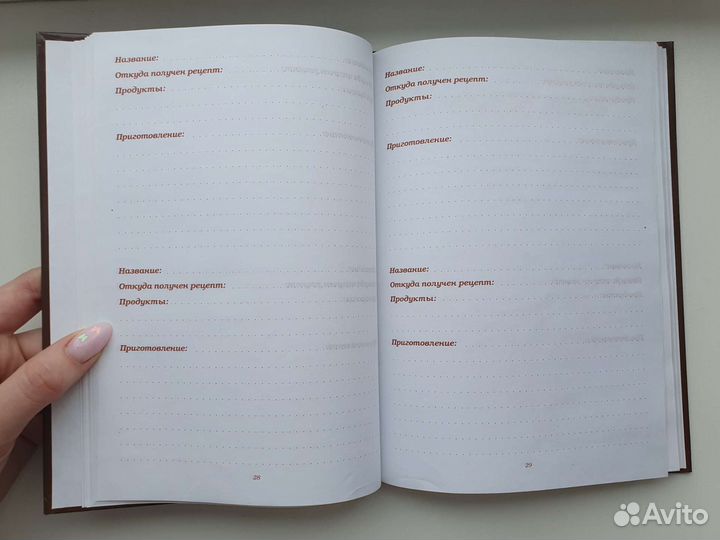 Название:
Откуда получен рецепт:
Продукты:
Приготовление:
Название:
Откуда получен рецепт:
Продукты:
Приготовление:
28
Название:
Откуда получен рецепт:
Продукты:
Приготовление:
Название:
Откуда получен рецепт:
Продукты:
Приготовление:
29
Avito